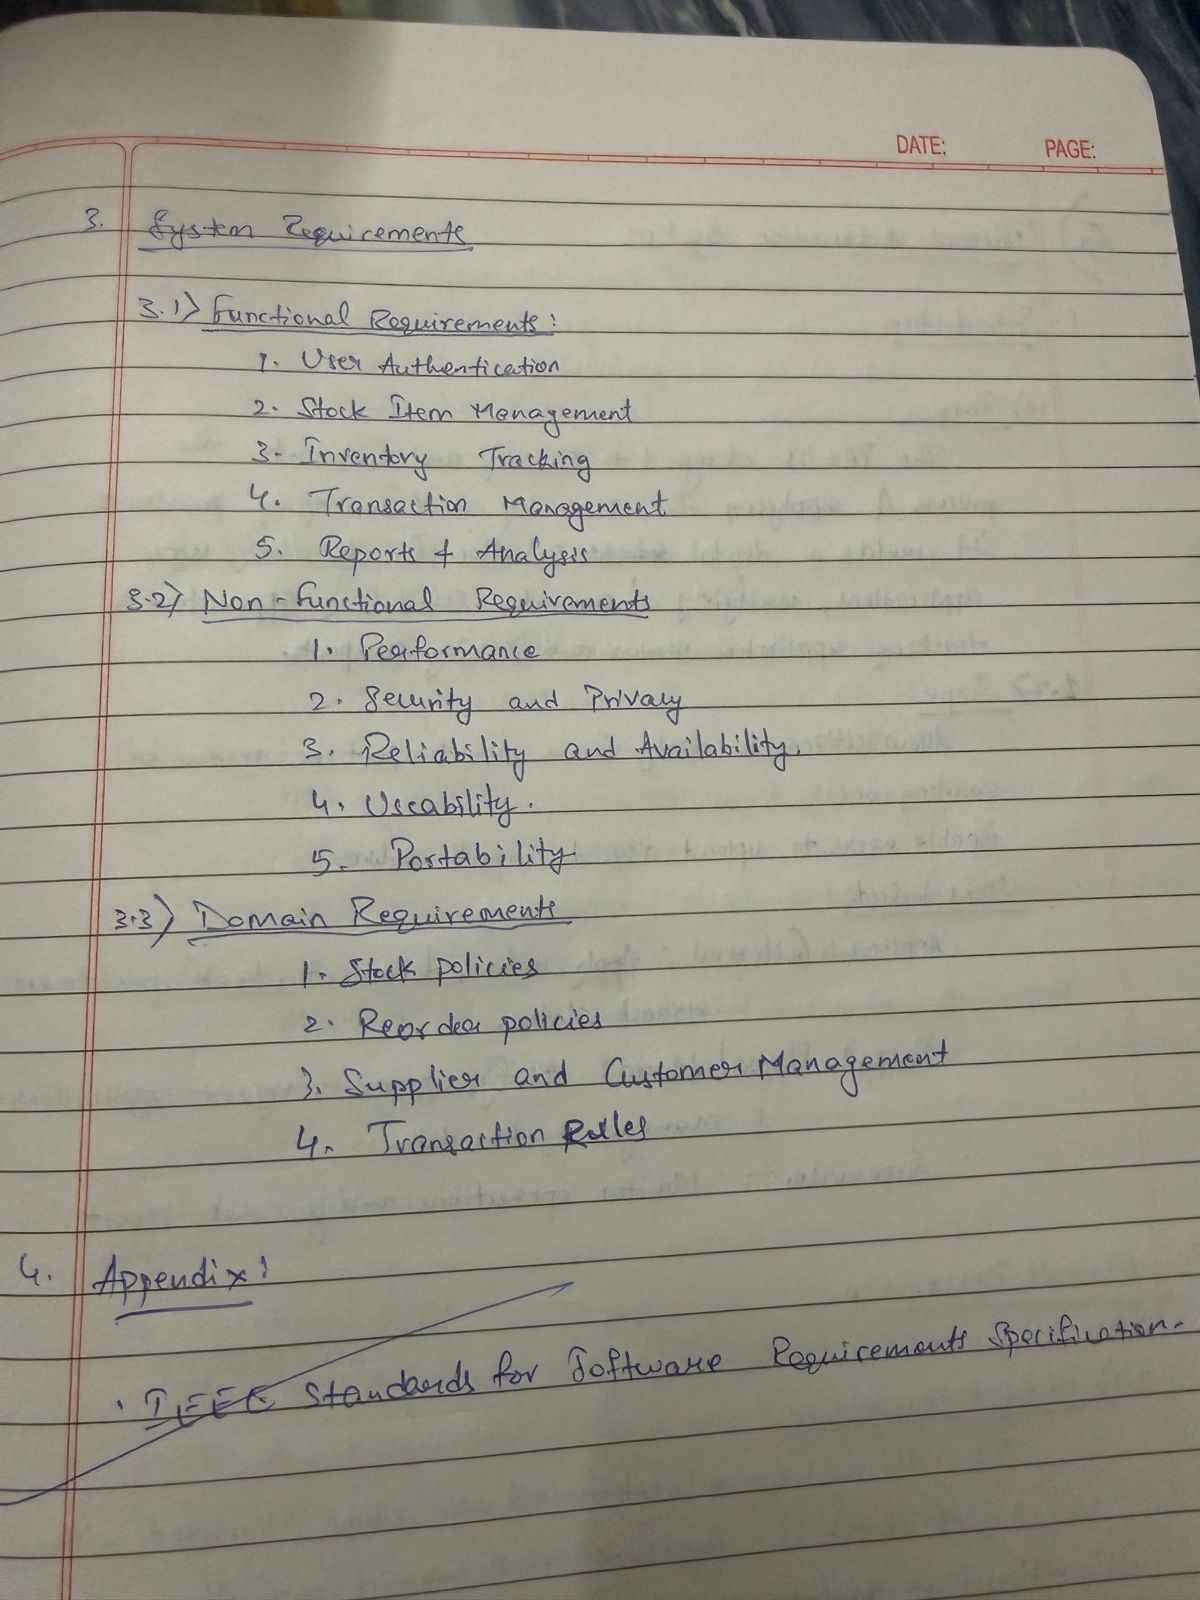 DATE: PAGE:
3. System Requirements
3.1) Functional Requirements:
1. User Authentication
2. Stock Item Management
3. Inventory Tracking
4. Transaction Management
5. Reports & Analysis
3.2) Non-Functional Requirements
1. Performance
2. Security and Privacy
3. Reliability and Availability.
4. Useability.
5. Portability
3.3) Domain Requirements
1. Stock policies
2. Reorder policies
3. Supplier and Customer Management
4. Transaction Rules
4. Appendix:
. IEEE Standards for Software Requirements Specification.